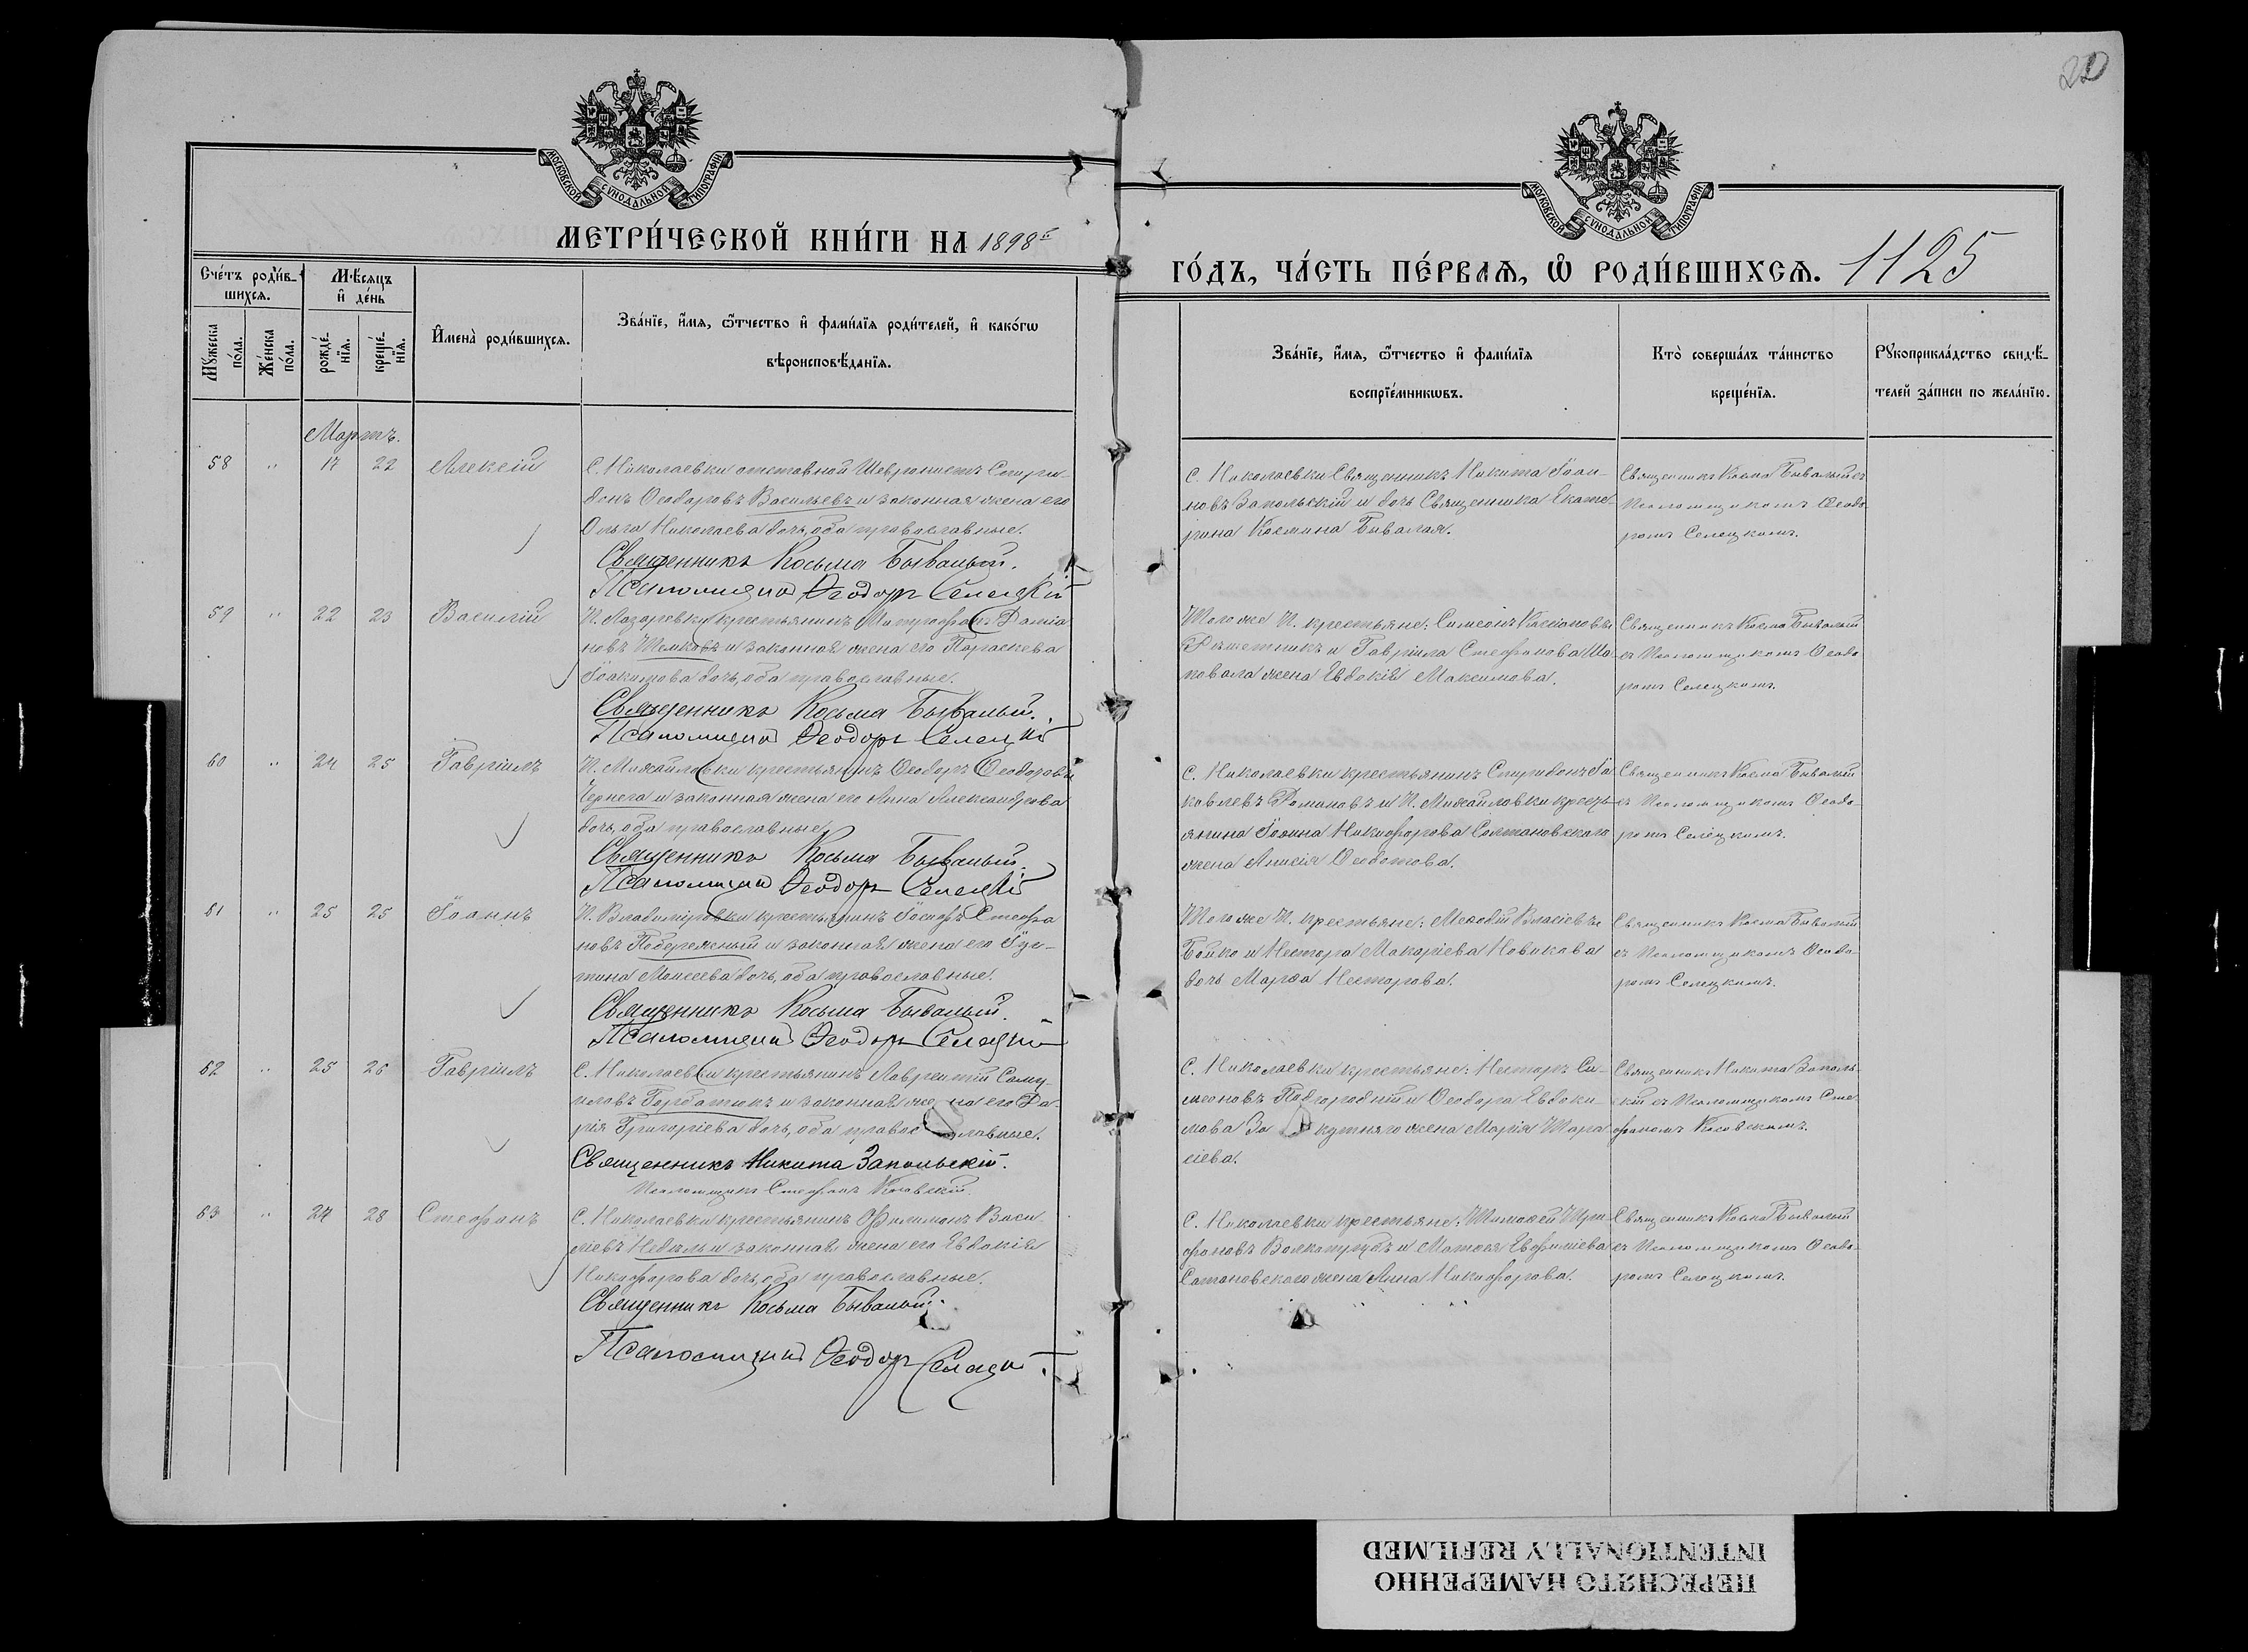 220
МОСКОВСКОЙ СУНОДАЛЬНОЙ ТИПОГРАФІИ
МОСКОВСКОЙ СУНОДАЛЬНОЙ ТИПОГРАФІИ
МЕТРИ́ЧЕСКОЙ КНИ́ГИ НА 1898й
ГО́ДЪ, ЧА́СТЬ ПЕ́РВАѦ, Ѡ҆ РОДИ́ВШИХСѦ. 1125
Сче́тъ роди́в-
шихсѧ.
Мѣ́сѧцъ
и҆ де́нь
Мꙋжеска
по́ла.
Же́нска
по́ла.
рожде́-
нїѧ.
креще́-
нїѧ.
И҆мена̀ роди́вшихсѧ.
Зва́нїе, и҆́мѧ, ѻ҆́тчество и҆ фами́лїѧ роди́телей, и҆ како́гѡ
вѣроисповѣ́данїѧ.
Зва́нїе, и҆́мѧ, ѻ҆́тчество и҆ фами́лїѧ
воспрїе́мникѡвъ.
Кто̀ соверша́лъ та́инство
креще́нїѧ.
Рꙋкоприкла́дство свидѣ́-
телей за́писи по жела́нїю.
Мартъ.
58 " 17 22 Алексій
С. Николаевки отставной Шевронистъ Спири-
донъ Ѳеодоровъ Васильевъ и законная жена его
Ольга Николаева дочь, оба православные.
Священникъ Косьма Бывалый.
Псаломщикъ Ѳеодоръ Селецкій
С. Николаевки Священникъ Никита Іоан-
новъ Запольскій и дочь Священника Екате-
рина Космина Бывалая.
Священникъ Косма Бывалый съ
Псаломщикомъ Ѳеодо
ромъ Селецкимъ.
59 " 22 23 Василій
П. Лазаревки крестьянинъ Митрофанъ Даміа
новъ Шемковъ и законная жена его Параскева
Іоакимова дочь, оба православные.
Священникъ Косьма Бывалый.
Псаломщикъ Ѳеодоръ Селецкій
Того же П. крестьяне: Симеонъ
Рѣшетникъ и Гавріила Стефанова Ша
повала жена Евдокія Максимова.
Священникъ Косма Бывалый
съ Псаломщикомъ Ѳеодо
ромъ Селецкимъ.
60 " 24 25 Гавріилъ
П. Михайловки крестьянинъ Ѳеодоръ Ѳеодоровъ
Чернега и законная жена его Анна Александрова
дочь, оба православные.
Священникъ Косьма Бывалый.
Псаломщикъ Ѳеодоръ Селецкій
С. Николаевки крестьянинъ Спиридонъ Іа
ковлевъ Романовъ и П. Михайловки кресть-
янина Іоанна Никифорова Солтановскаго
жена Анисія Ѳеодотова.
Священникъ Косма Бывалый
съ Псаломщикомъ Ѳеодо-
ромъ Селецкимъ.
61 " 25 25 Іоаннъ
П. Владиміровки крестьянинъ Іосифъ Стефа
новъ Побережный и законная жена его Іус-
тина Моисеева дочь, оба православные.
Священникъ Косьма Бывалый.
Псаломщикъ Ѳеодоръ Селецкій
Того же П. крестьяне: Меѳодій Власіевъ
Бойко и Нестора Макаріева Новикова
дочь Марѳа Несторова.
Священникъ Косма Бывалый
съ Псаломщикомъ Ѳеодо-
ромъ Селецкимъ.
62 " 25 26 Гавріилъ
С. Николаевки крестьянинъ Лаврентій Саму-
иловъ Горбатюкъ и законная жена его Да-
рія Григоріева дочь, оба православные.
Священникъ Никита Запольскій.
Псаломщикъ Стефанъ Косовскій.
С. Николаевки крестьяне: Несторъ Си-
меоновъ Подгородній и Ѳеодора Евдоки-
мова Закутняго жена Марія Тара
сіева.
Священникъ Никита Заполь-
скій съ Псаломщикомъ Сте
фаномъ Косовскимъ.
63 " 27 28 Стефанъ
С. Николаевки крестьянинъ Филимонъ Васи-
ліевъ и законная жена его Евдокія
Никифорова дочь, оба православные.
Священникъ Косьма Бывалый.
Псаломщикъ Ѳеодоръ Селецкій.
С. Николаевки крестьяне: Тимоѳей Три-
фоновъ и Матѳея Евфиміева
Сатановскаго жена Анна Никифорова.
Священникъ Косма Бывалый
съ Псаломщикомъ Ѳеодо-
ромъ Селецкимъ.
ПЕРЕСНЯТО НАМЕРЕННО
INTENTIONALLY REFILMED